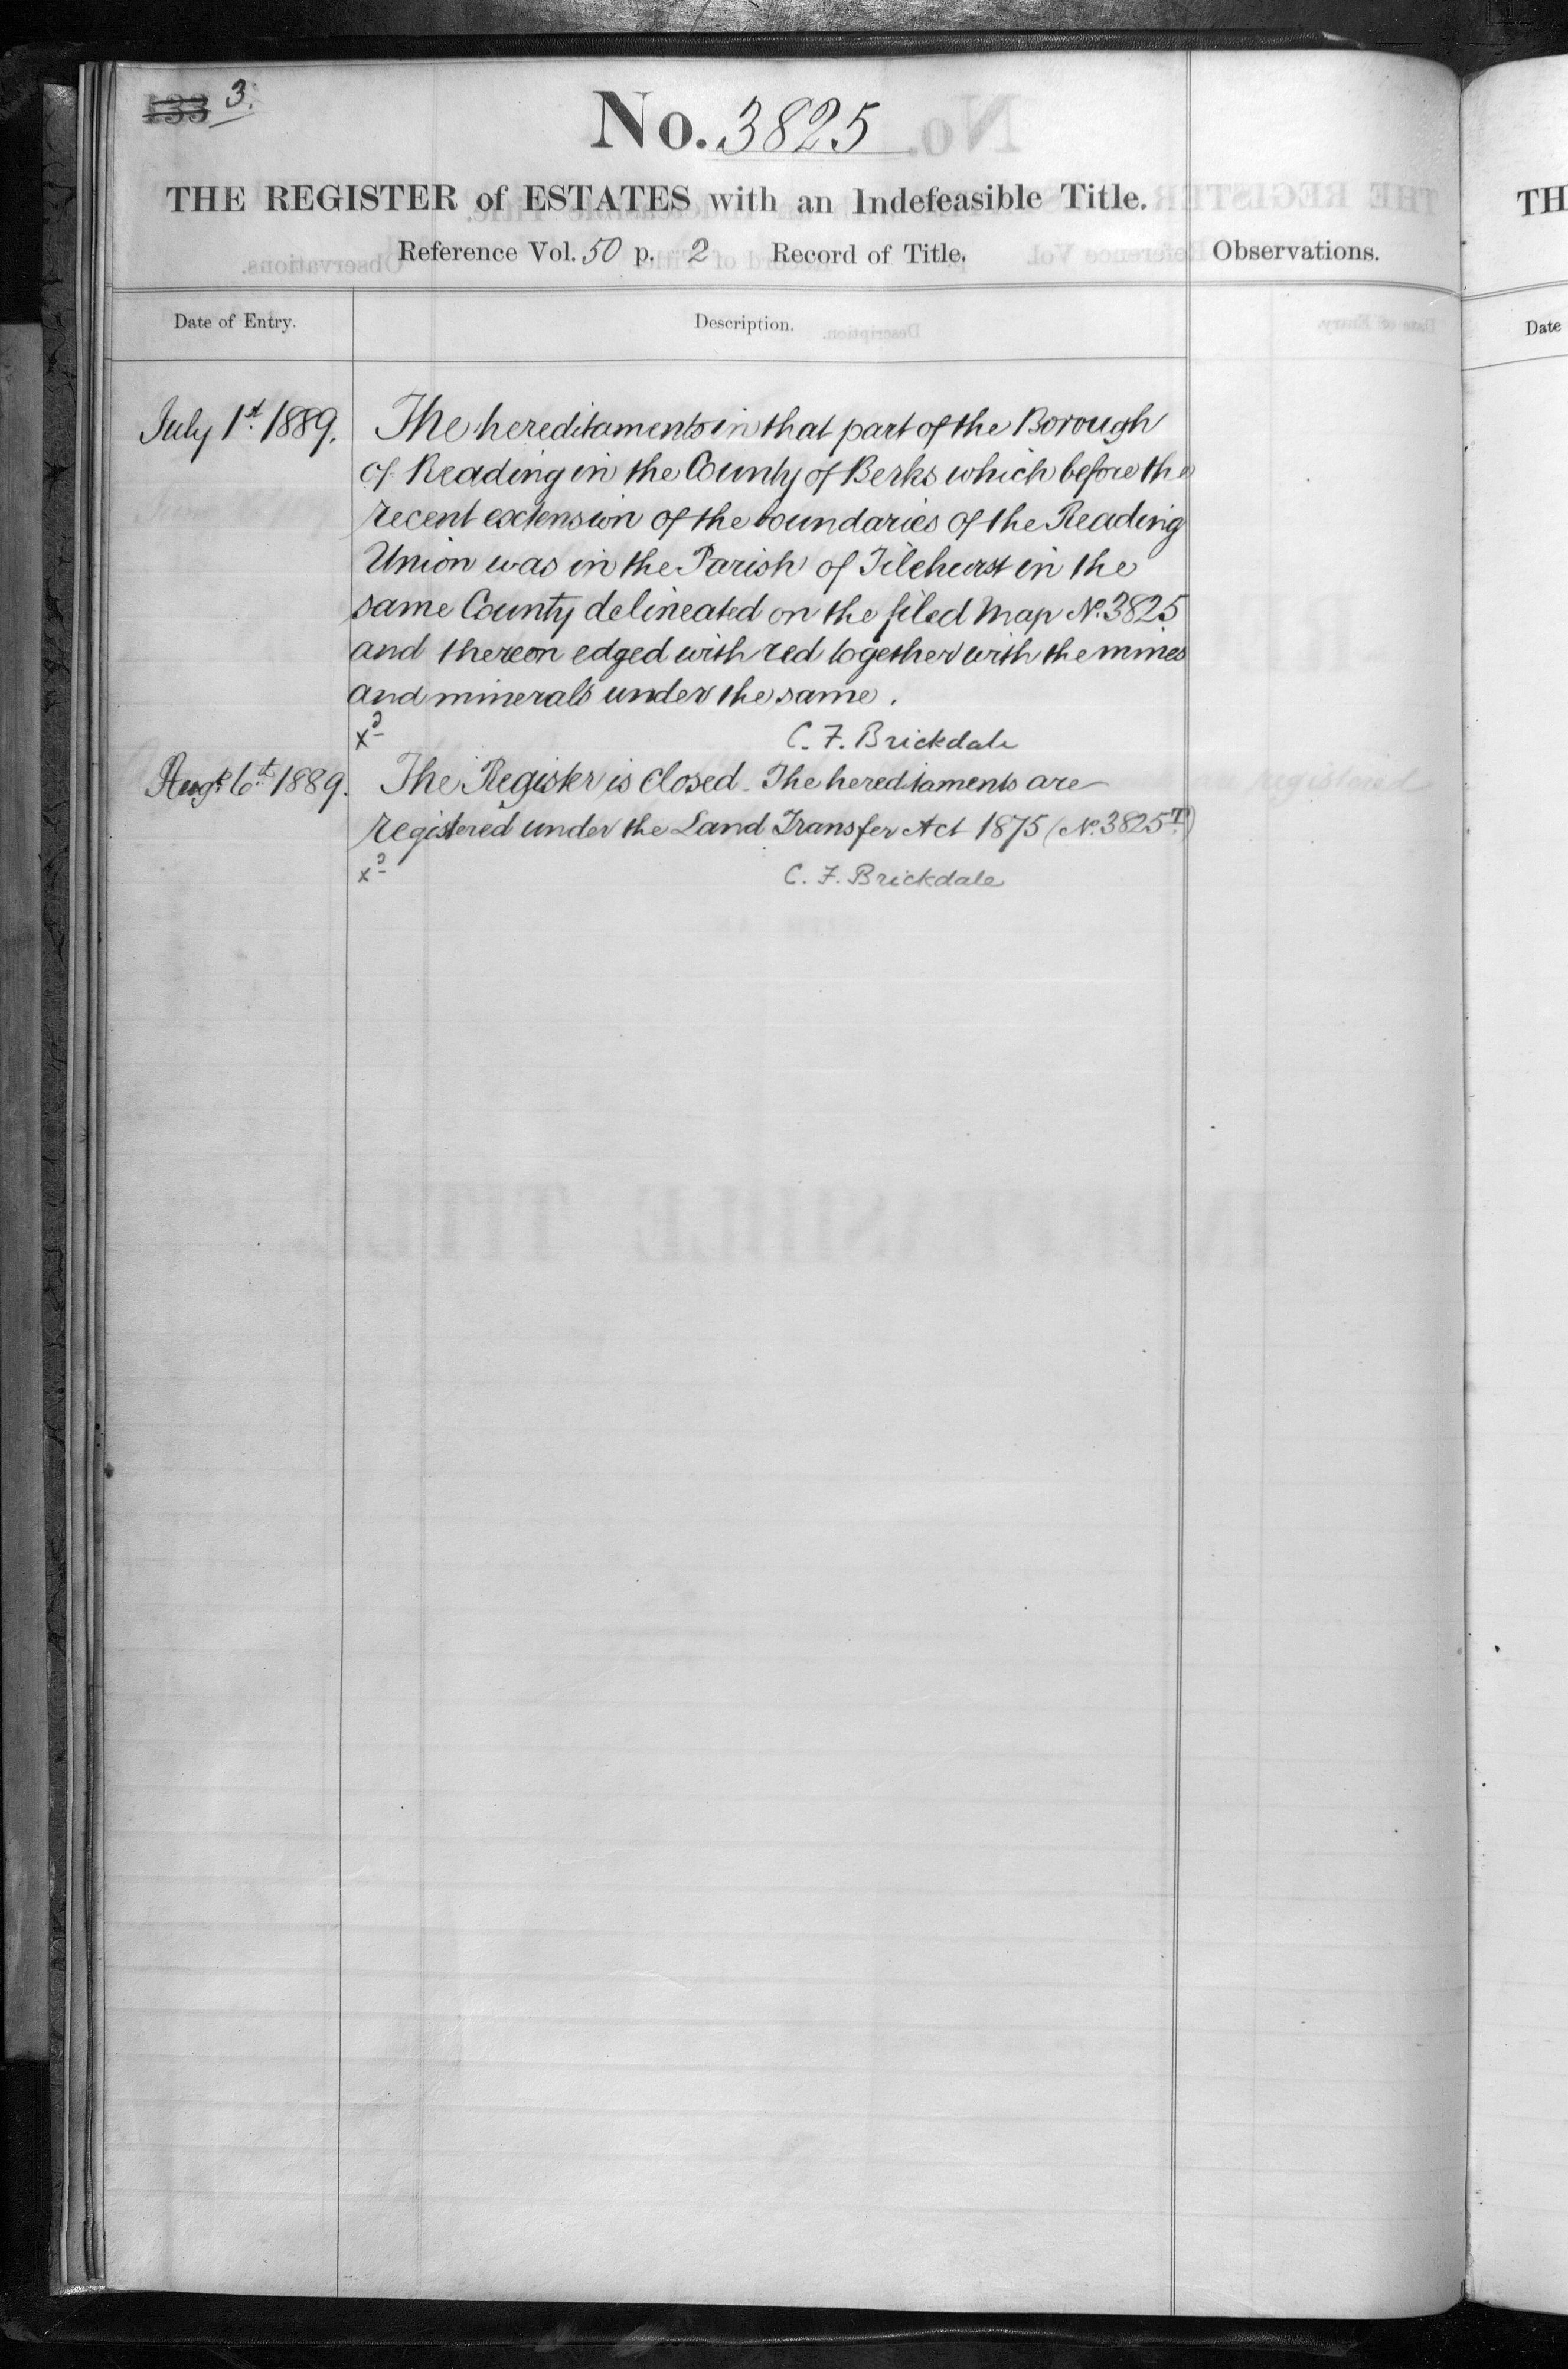 133 3.
No. 3825
THE REGISTER of ESTATES with an Indefeasible Title.
Reference Vol. 50 p. 2 Record of Title.
Observations.
Date of Entry.
Description.
July 1st 1889.
The hereditaments in that part of the Borough
of Reading in the County of Berks which before the
recent extension of the boundaries of the Reading
Union was in the Parish of Tilehurst in the
same County delineated on the filed Map No. 3825
and thereon edged with red together with the mines
and minerals under the same.
xd C. F. Brickdale
Augt. 6th 1889.
The Register is closed. The hereditaments are
registered under the Land Transfer Act 1875 (No. 3825T.)
xd C. F. Brickdale
TH
Date